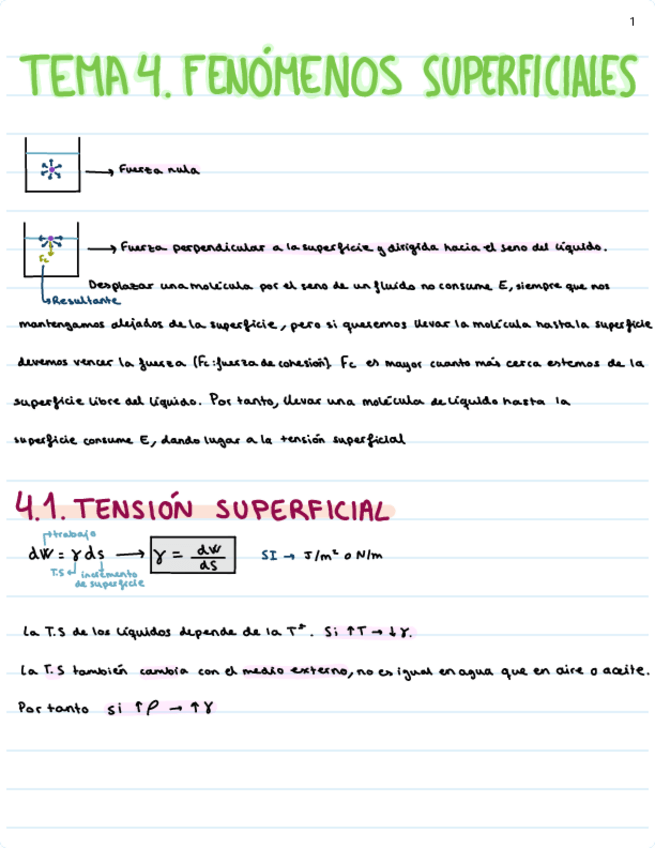 1
TEMA 4. FENÓMENOS SUPERFICIALES
Fuerza nula
Fuerza perpendicular a la superficie y dirigida hacia el seno del líquido.
Fc
Desplazar una molécula por el seno de un fluido no consume E, siempre que nos
Resultante
mantengamos alejados de la superficie, pero si queremos llevar la molécula hasta la superficie
devemos vencer la fuerza (Fc: fuerza de cohesión). Fc es mayor cuanto más cerca estemos de la
superficie libre del líquido. Por tanto, llevar una molécula de líquido hasta la
superficie consume E, dando lugar a la tensión superficial
4.1. TENSIÓN SUPERFICIAL
trabajo
dW = γ ds → γ = dW/ds SI → J/m² o N/m
T.S incremento
de superficie
La T.S de los líquidos depende de la Tª. Si ↑T → ↓γ.
La T.S también cambia con el medio externo, no es igual en agua que en aire o aceite.
Por tanto si ↑ρ → ↑γ